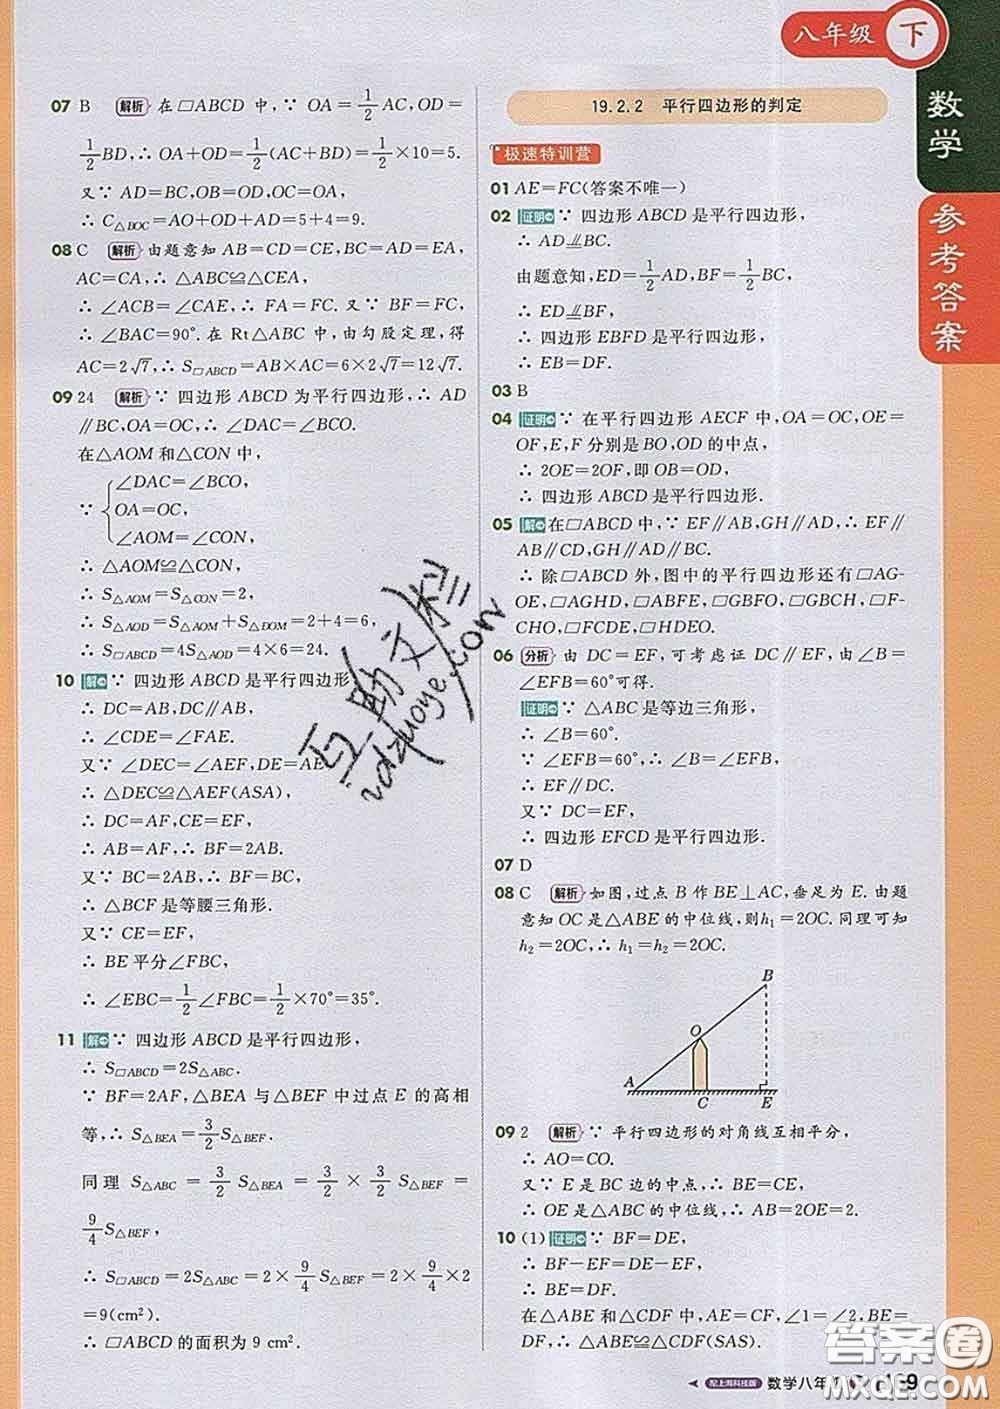 八年级 下
数学
参考答案
07 B 解析 在▱ABCD 中,∵ OA=1/2AC,OD=
1/2BD,∴ OA+OD=1/2(AC+BD)=1/2×10=5.
又∵ AD=BC,OB=OD,OC=OA,
∴ C△BOC=AO+OD+AD=5+4=9.
08 C 解析 由题意知 AB=CD=CE,BC=AD=EA,
AC=CA,∴ △ABC≌△CEA,
∴ ∠ACB=∠CAE,∴ FA=FC. 又∵ BF=FC,
∴ ∠BAC=90°. 在 Rt△ABC 中,由勾股定理,得
AC=2√7,∴ S▱ABCD=AB×AC=6×2√7=12√7.
09 24 解析 ∵ 四边形 ABCD 为平行四边形,∴ AD
∥BC,OA=OC,∴ ∠DAC=∠BCO.
在△AOM 和△CON 中,
∠DAC=∠BCO,
∵ OA=OC,
∠AOM=∠CON,
∴ △AOM≌△CON,
∴ S△AOM=S△CON=2,
∴ S△AOD=S△AOM+S△DOM=2+4=6,
∴ S▱ABCD=4S△AOD=4×6=24.
10 解 ∵ 四边形 ABCD 是平行四边形
∴ DC=AB,DC∥AB,
∴ ∠CDE=∠FAE.
又∵ ∠DEC=∠AEF,DE=AE
∴ △DEC≌△AEF(ASA),
∴ DC=AF,CE=EF,
∴ AB=AF,∴ BF=2AB.
又∵ BC=2AB,∴ BF=BC,
∴ △BCF 是等腰三角形.
又∵ CE=EF,
∴ BE 平分∠FBC,
∴ ∠EBC=1/2∠FBC=1/2×70°=35°.
11 解 ∵ 四边形 ABCD 是平行四边形,
∴ S▱ABCD=2S△ABC.
∵ BF=2AF,△BEA 与△BEF 中过点 E 的高相
等,∴ S△BEA=3/2S△BEF.
同理 S△ABC=3/2S△BEA=3/2×3/2S△BEF=
9/4S△BEF,
∴ S▱ABCD=2S△ABC=2×9/4S△BEF=2×9/4×2
=9(cm²).
∴ ▱ABCD 的面积为 9 cm².
19.2.2 平行四边形的判定
极速特训营
01 AE=FC(答案不唯一)
02 证明 ∵ 四边形 ABCD 是平行四边形,
∴ AD⫽BC.
由题意知,ED=1/2AD,BF=1/2BC,
∴ ED⫽BF,
∴ 四边形 EBFD 是平行四边形,
∴ EB=DF.
03 B
04 证明 ∵ 在平行四边形 AECF 中,OA=OC,OE=
OF,E,F 分别是 BO,OD 的中点,
∴ 2OE=2OF,即 OB=OD,
∴ 四边形 ABCD 是平行四边形.
05 解 在▱ABCD 中,∵ EF∥AB,GH∥AD,∴ EF∥
AB∥CD,GH∥AD∥BC.
∴ 除▱ABCD 外,图中的平行四边形还有▱AG-
OE,▱AGHD,▱ABFE,▱GBFO,▱GBCH,▱F-
CHO,▱FCDE,▱HDEO.
06 分析 由 DC=EF,可考虑证 DC∥EF,由∠B=
∠EFB=60°可得.
证明 ∵ △ABC 是等边三角形,
∴ ∠B=60°.
∵ ∠EFB=60°,∴ ∠B=∠EFB,
∴ EF∥DC.
又∵ DC=EF,
∴ 四边形 EFCD 是平行四边形.
07 D
08 C 解析 如图,过点 B 作 BE⊥AC,垂足为 E. 由题
意知 OC 是△ABE 的中位线,则h₁=2OC. 同理可知
h₂=2OC,∴ h₁=h₂=2OC.
B
O
A C E
09 2 解析 ∵ 平行四边形的对角线互相平分,
∴ AO=CO.
又∵ E 是 BC 边的中点,∴ BE=CE,
∴ OE 是△ABC 的中位线,∴ AB=2OE=2.
10 (1) 证明 ∵ BF=DE,
∴ BF-EF=DE-EF,
∴ BE=DF.
在△ABE 和△CDF 中,AE=CF,∠1=∠2,BE=
DF,∴ △ABE≌△CDF(SAS).
配上海科技版 数学八年
答案圈